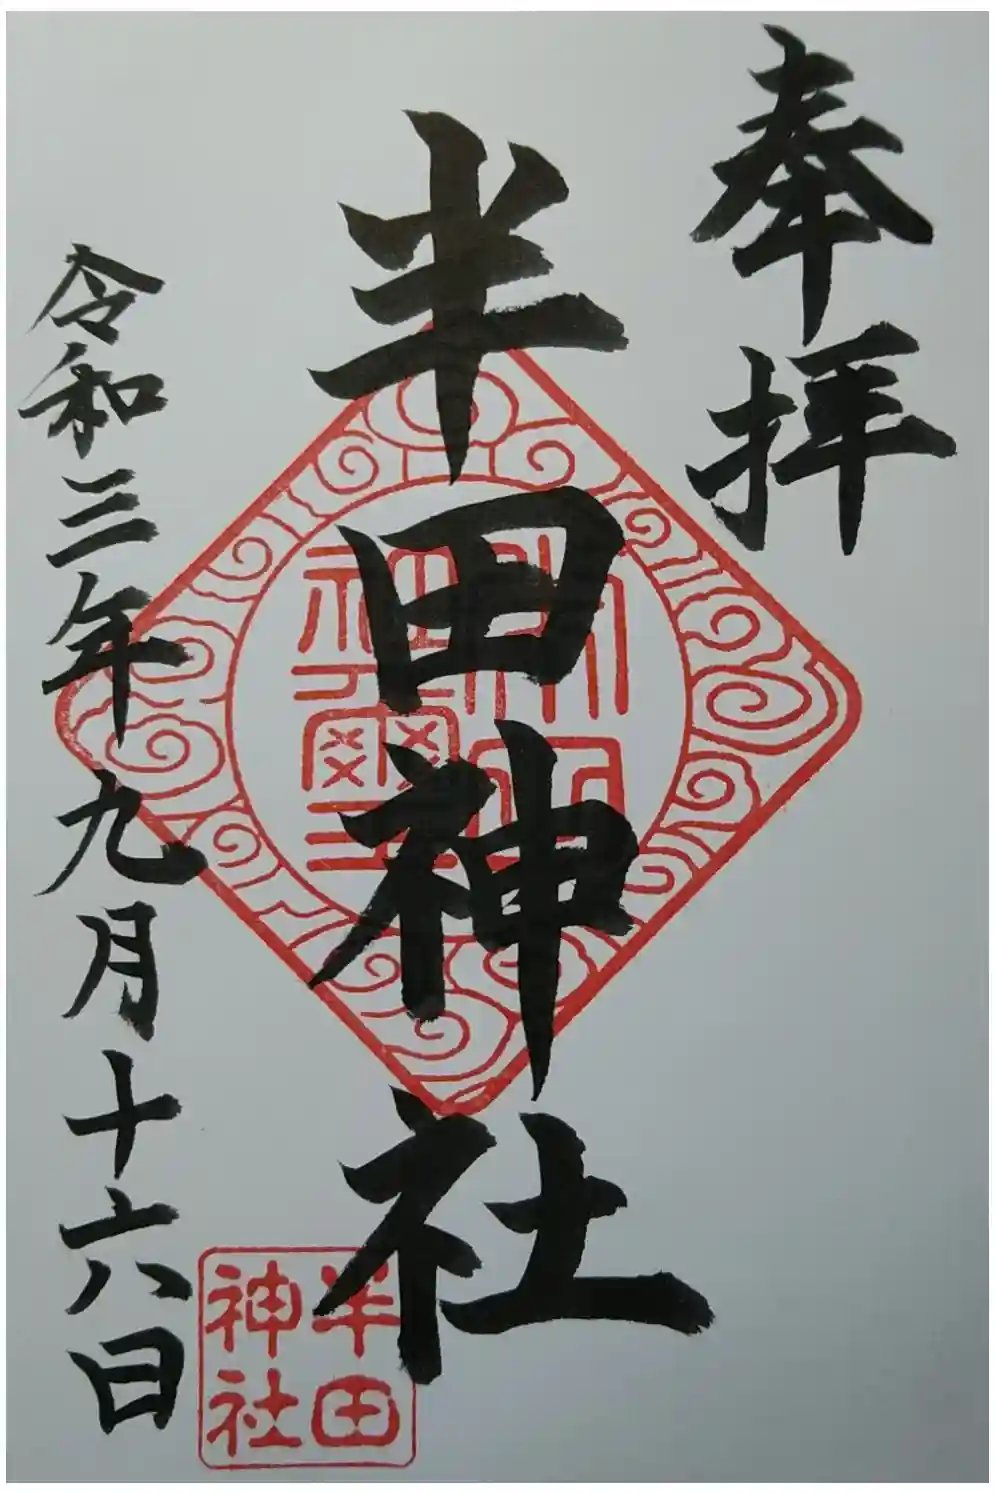 奉拝
半田神社
令和三年九月十六日
半田
神社